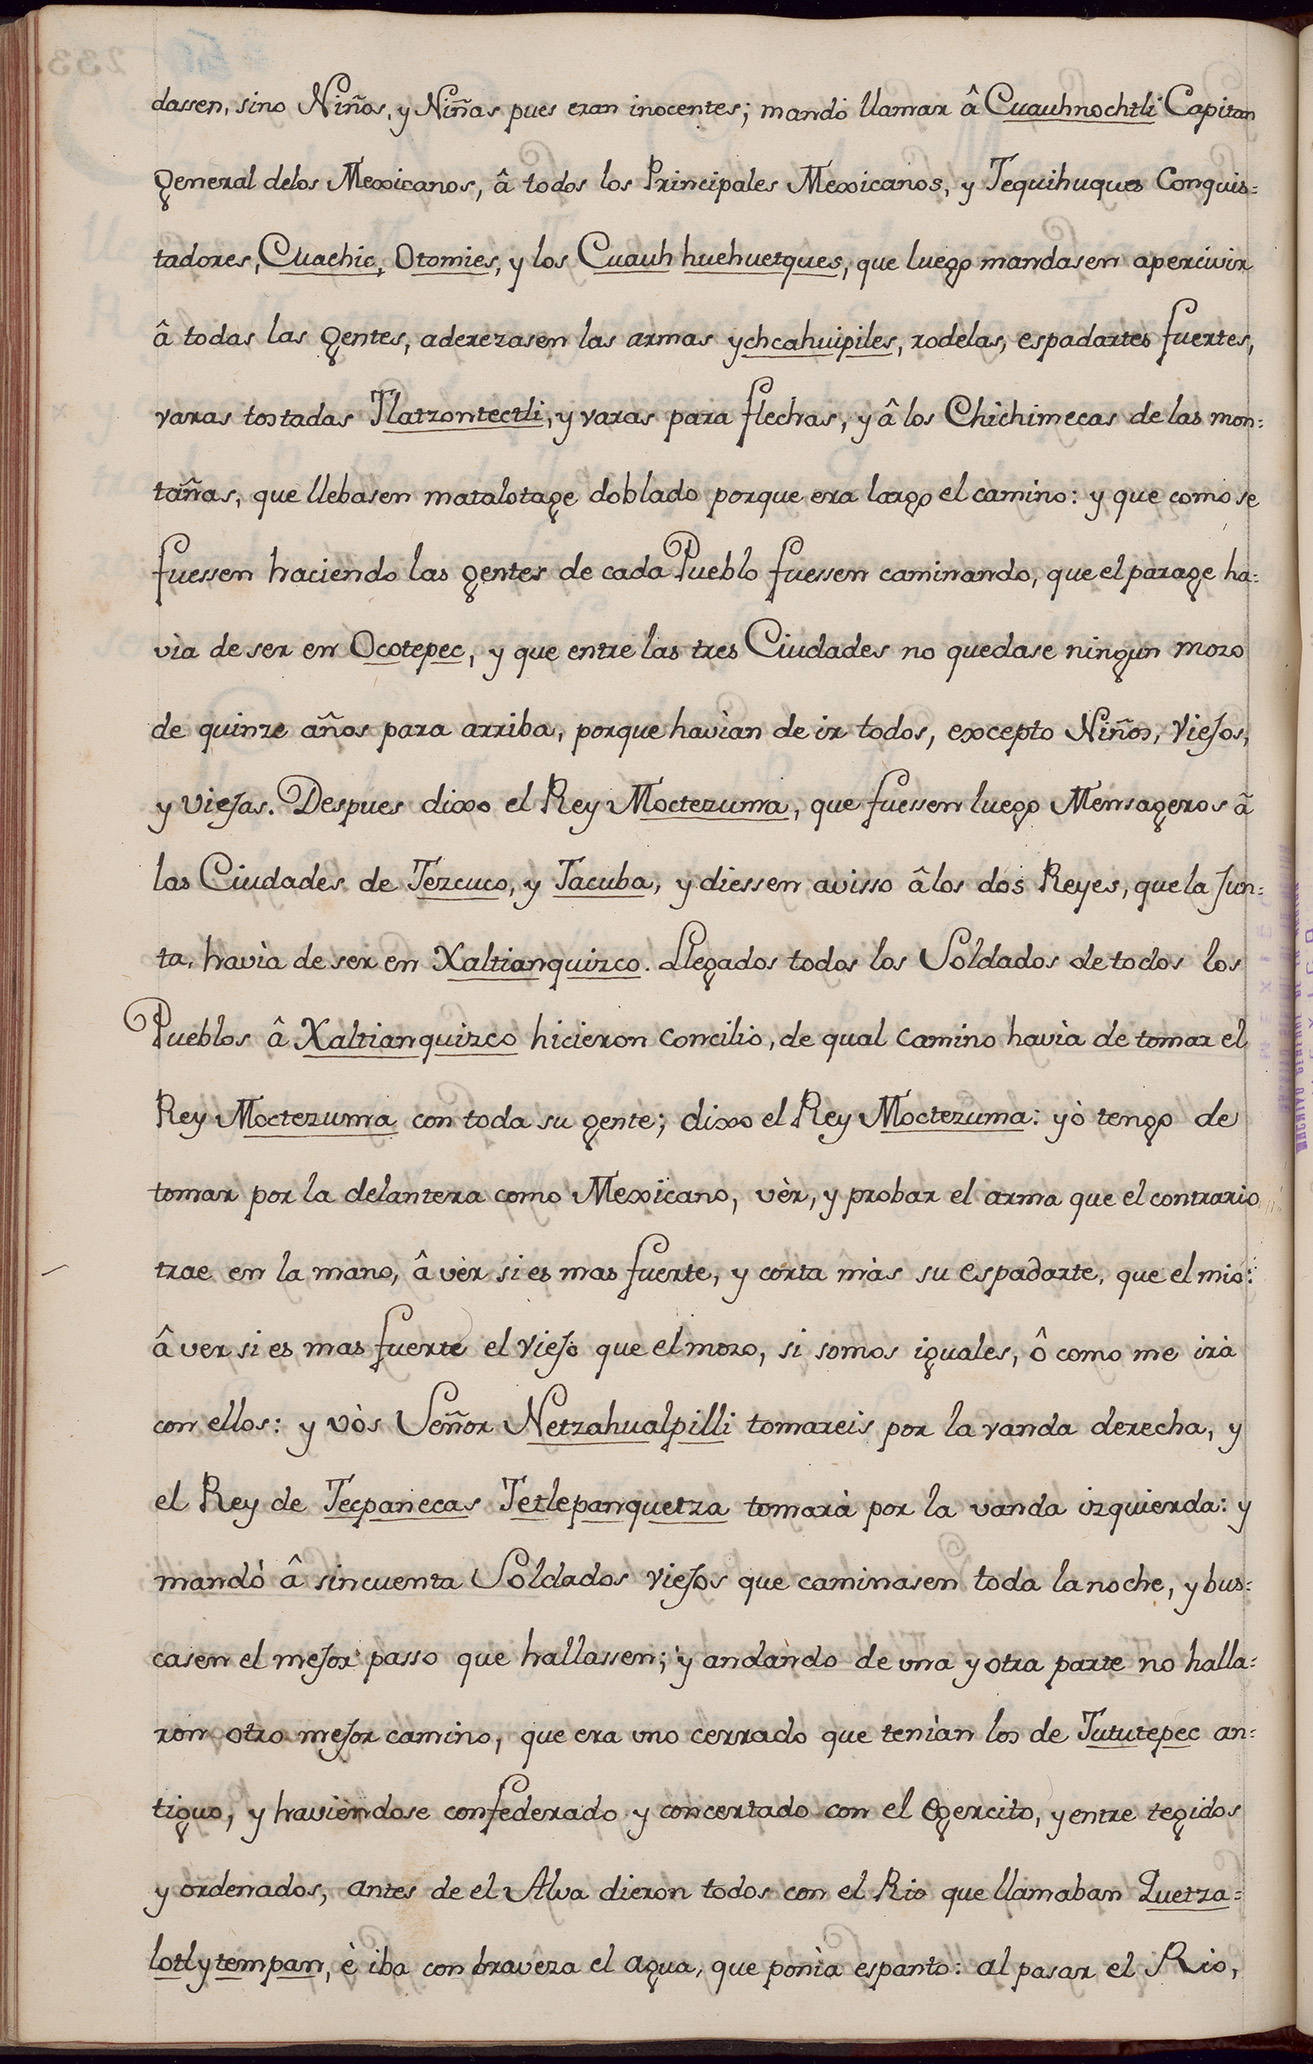 dassen, sino Niños, y Niñas pues eran inocentes; mandó llamar â Cuauhnochtli Capitan
general delos Mexicanos, â todos los Principales Mexicanos, y Tequihuques Conquis=
tadores, Cuachic, Otomies, y los Cuauh huehuetques, que luego mandasen apercivir
â todas las gentes, aderezasen las armas ychcahuipiles, rodelas, espadartes fuertes,
varas tostadas Tlatzontectli, y varas para flechas, y â los Chichimecas de las mon=
tañas, que llebasen matalotage doblado porque era largo el camino: y que como se
fuessen haciendo las gentes de cada Pueblo fuessen caminando, que el parage ha=
vìa de ser en Ocotepec, y que entre las tres Ciudades no quedase ningun mozo
de quinze años para arriba, porque havìan de ir todos, excepto Niños, Viejos,
y Viejas. Despues dixo el Rey Moctezuma, que fuessen luego Mensageros ã
las Ciudades de Tezcuco, y Tacuba, y diessen avisso âlos dos Reyes, que la Jun=
ta, havìa de ser en Xaltianquizco. Llegados todos los Soldados de todos los
Pueblos â Xaltianquizco hicieron concilio, de qual camino havìa de tomar el
Rey Moctezuma con toda su gente; dixo el Rey Moctezuma: yò tengo de
tomar por la delantera como Mexicano, vèr, y probar el arma que el contrario
trae en la mano, â vèr si es mas fuerte, y corta màs su espadarte, que el mio:
â ver si es mas fuerte el viejo que el mozo, si somos iguales, ô como me irà
con ellos: y vòs Señor Netzahualpilli tomareis por la vanda derecha, y
el Rey de Tecpanecas Tetlepanquetza tomarà por la vanda izquierda: y
mandò â sincuenta Soldados viejos que caminasen toda la noche, y bus=
casen el mejor passo que hallassen; y andando de una y otra parte no halla=
ron otro mejor camino, que era uno cerrado que tenìan los de Tututepec an=
tiguo, y haviendose confederado y concertado con el egercito, y entre tegidos
y ordenados, antes de el Alva dieron todos con el Rio que llamaban Quetza=
lotlytempan, è iba con braveza el agua, que ponìa espanto: al pasar el Rio,